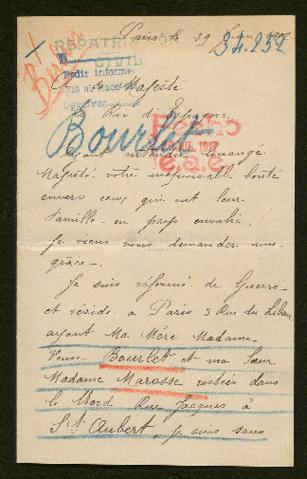 Paris le 29 1917
34.252
REPATRIACION
CIVIL
Pedir informes
Bourlet
Majesté
Le Roi d'Espagne
Bourlet
Fecho
1917
Ayant entendu louangé
Majesté votre inépuisable bonté
envers ceux qui ont leur
famille en pays envahi,
Je viens vous demander une
grâce.
Je suis réformé de Guerre
et réside à Paris 3 Rue du Liban
ayant Ma Mère Madame
Veuve Bourlet et ma sœur
Madame Marosse restées dans
le Nord Rue Jacques à
St Aubert, je suis sans